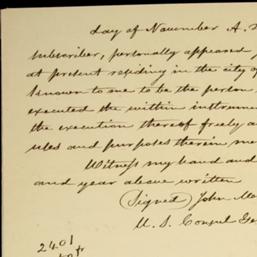 day of November A.
subscriber, personally appeared
at present residing in the city of
known to me to be the person
executed the within instrum
the execution thereof freely a
uses and purposes therein me
Witness my hand and
and year above written
(Signed) John
U. S. Consul Ge
2401